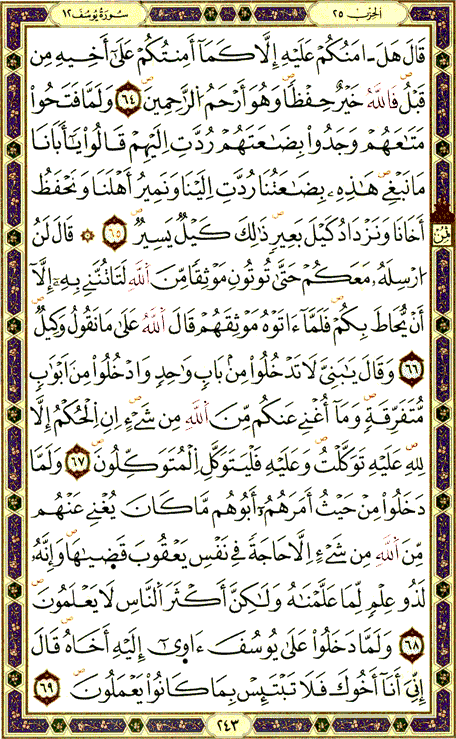 سُورَةُ يُوسُفَ ١٢
الحِزْبُ ٢٥
قَالَ هَلَ ـ امَنُكُمْ عَلَيْهِ إِلَّا كَمَآ أَمِنتُكُمْ عَلَىٰٓ أَخِيهِ مِن
قَبْلُ فَاللَّهُ خَيْرٌ حِفْظًا وَهُوَ أَرْحَمُ الرَّٰحِمِينَ ٦٤ وَلَمَّا فَتَحُواْ
مَتَٰعَهُمْ وَجَدُواْ بِضَٰعَتَهُمْ رُدَّتِ اِلَيْهِمْ قَالُواْ يَٰٓأَبَانَا
مَا نَبْغِے هَٰذِهِۦ بِضَٰعَتُنَا رُدَّتِ اِلَيْنَا وَنَمِيرُ أَهْلَنَا وَنَحْفَظُ
أَخَانَا وَنَزْدَادُ كَيْلَ بَعِيرٍ ذَٰلِكَ كَيْلٌ يَسِيرٌ ٦٥ ۞ قَالَ لَنُ
ارْسِلَهُۥ مَعَكُمْ حَتَّىٰ تُوتُونِ مَوْثِقًا مِّنَ اَللَّهِ لَتَاتُنَّنِے بِهِۦٓ إِلَّآ
أَنْ يُّحَاطَ بِكُمْ فَلَمَّآ ءَاتَوْهُ مَوْثِقَهُمْ قَالَ اَللَّهُ عَلَىٰ مَا نَقُولُ وَكِيلٌ
٦٦ وَقَالَ يَٰبَنِيَّ لَا تَدْخُلُواْ مِنۢ بَابٍ وَٰحِدٍ وَادْخُلُواْ مِنَ اَبْوَٰبٍ
مُّتَفَرِّقَةٍ وَمَآ أُغْنِے عَنكُم مِّنَ اَللَّهِ مِن شَےْءٍ اِنِ اِلْحُكْمُ إِلَّا
لِلهِ عَلَيْهِ تَوَكَّلْتُ وَعَلَيْهِ فَلْيَتَوَكَّلِ اِلْمُتَوَكِّلُونَ ٦٧ وَلَمَّا
دَخَلُواْ مِنْ حَيْثُ أَمَرَهُمُۥٓ أَبُوهُم مَّا كَانَ يُغْنِے عَنْهُم
مِّنَ اَللَّهِ مِن شَےْءٍ اِلَّا حَاجَةً فِے نَفْسِ يَعْقُوبَ قَضَيٰهَا وَإِنَّهُۥ
لَذُو عِلْمٍ لِّمَا عَلَّمْنَٰهُ وَلَٰكِنَّ أَكْثَرَ اَلنَّاسِ لَا يَعْلَمُونَ
٦٨ وَلَمَّا دَخَلُواْ عَلَىٰ يُوسُفَ ءَاوِىٰٓ إِلَيْهِ أَخَاهُ قَالَ
إِنِّيَ أَنَآ أَخُوكَ فَلَا تَبْتَئِسْ بِمَا كَانُواْ يَعْمَلُونَ ٦٩
ثمن
٢٤٣